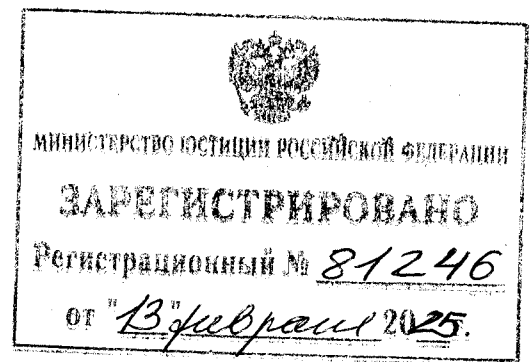 МИНИСТЕРСТВО ЮСТИЦИИ РОССИЙСКОЙ ФЕДЕРАЦИИ
ЗАРЕГИСТРИРОВАНО
Регистрационный № 81246
от "13" февраля 2025.